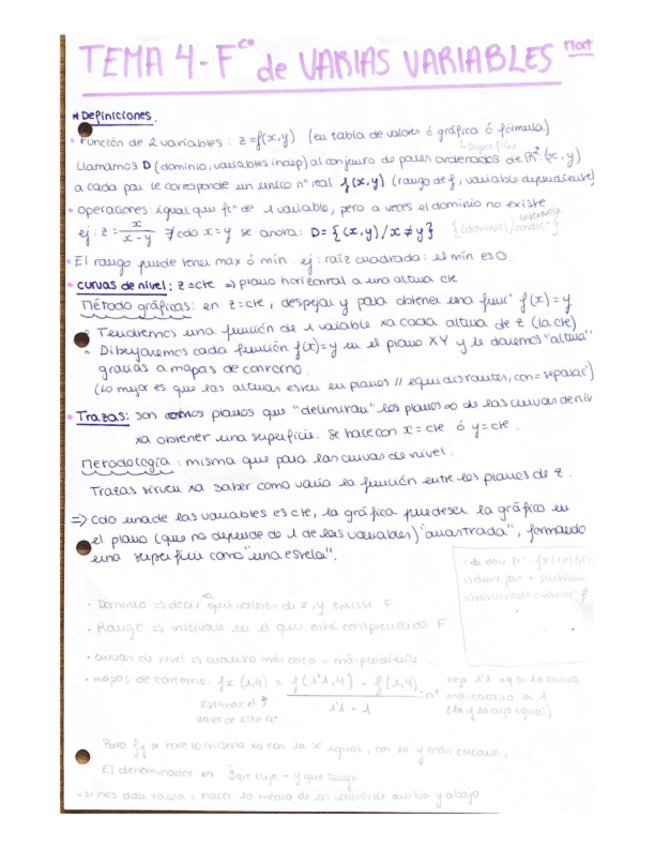 TEMA 4 - Fcⁿ de VARIAS VARIABLES Mat
* Definiciones.
• Función de 2 variables: z = f(x,y) (en tabla de valores ó gráfica ó fórmula)
↳superficie
Llamamos D (dominio, variables indep) al conjunto de pares ordenados de R²: (x,y)
a cada par le corresponde un único nº real f(x,y) (rango de f, variable dependiente)
• Operaciones: igual que fcⁿ de 1 variable, pero a veces el dominio no existe
ej: z = x/(x-y) ∄ cdo x=y se anota: D = {(x,y) / x≠y} {(dominio)/condicⁿ}
• El rango puede tener max ó mín. ej: raíz cuadrada: el mín es 0.
• curvas de nivel: z = cte ⇒ plano horizontal a una altura cte
Método gráficas: en z=cte, despejar y para obtener una funcⁿ f(x)=y
• Tendremos una función de 1 variable xa cada altura de z (la cte)
• Dibujaremos cada función f(x)=y en el plano XY y le daremos "altura"
gracias a mapas de contorno.
(Lo mejor es que las alturas estén en planos // equidistantes, con = separacⁿ)
• Trazas: son planos que "delimitan" los planos ∞ de las curvas de niv
xa obtener una superficie. Se hace con x = cte ó y = cte.
Metodología: misma que para las curvas de nivel.
Trazas sirven xa saber como varía la función entre los planos de z.
⇒ Cdo una de las variables es cte, la gráfica puede ser la gráfica en
el plano (que no depende de 1 de las variables) "arrastrada", formando
una superficie como "una estela".
• Dominio ⇒ decir qué valores de x, y existe F
• Rango ⇒ intervalo en el que está comprendido F
• curvas de nivel ⇒ cuanto más cerca = más pendiente
• mapas de contorno: fx (1,4) = f(1'1,4) - f(1,4) / 1'1 - 1 = nº
cojo 1'1 xq es la curva
más cercana a 1
(la y la dejo igual)
Estimar el
valor de esta fcⁿ
Para fy se hace lo mismo xo con la x igual, con la y más cercana.
El denominador es y que cojo - y que tengo
• Si nos dan tabla = hacer la media de los valores de arriba y abajo